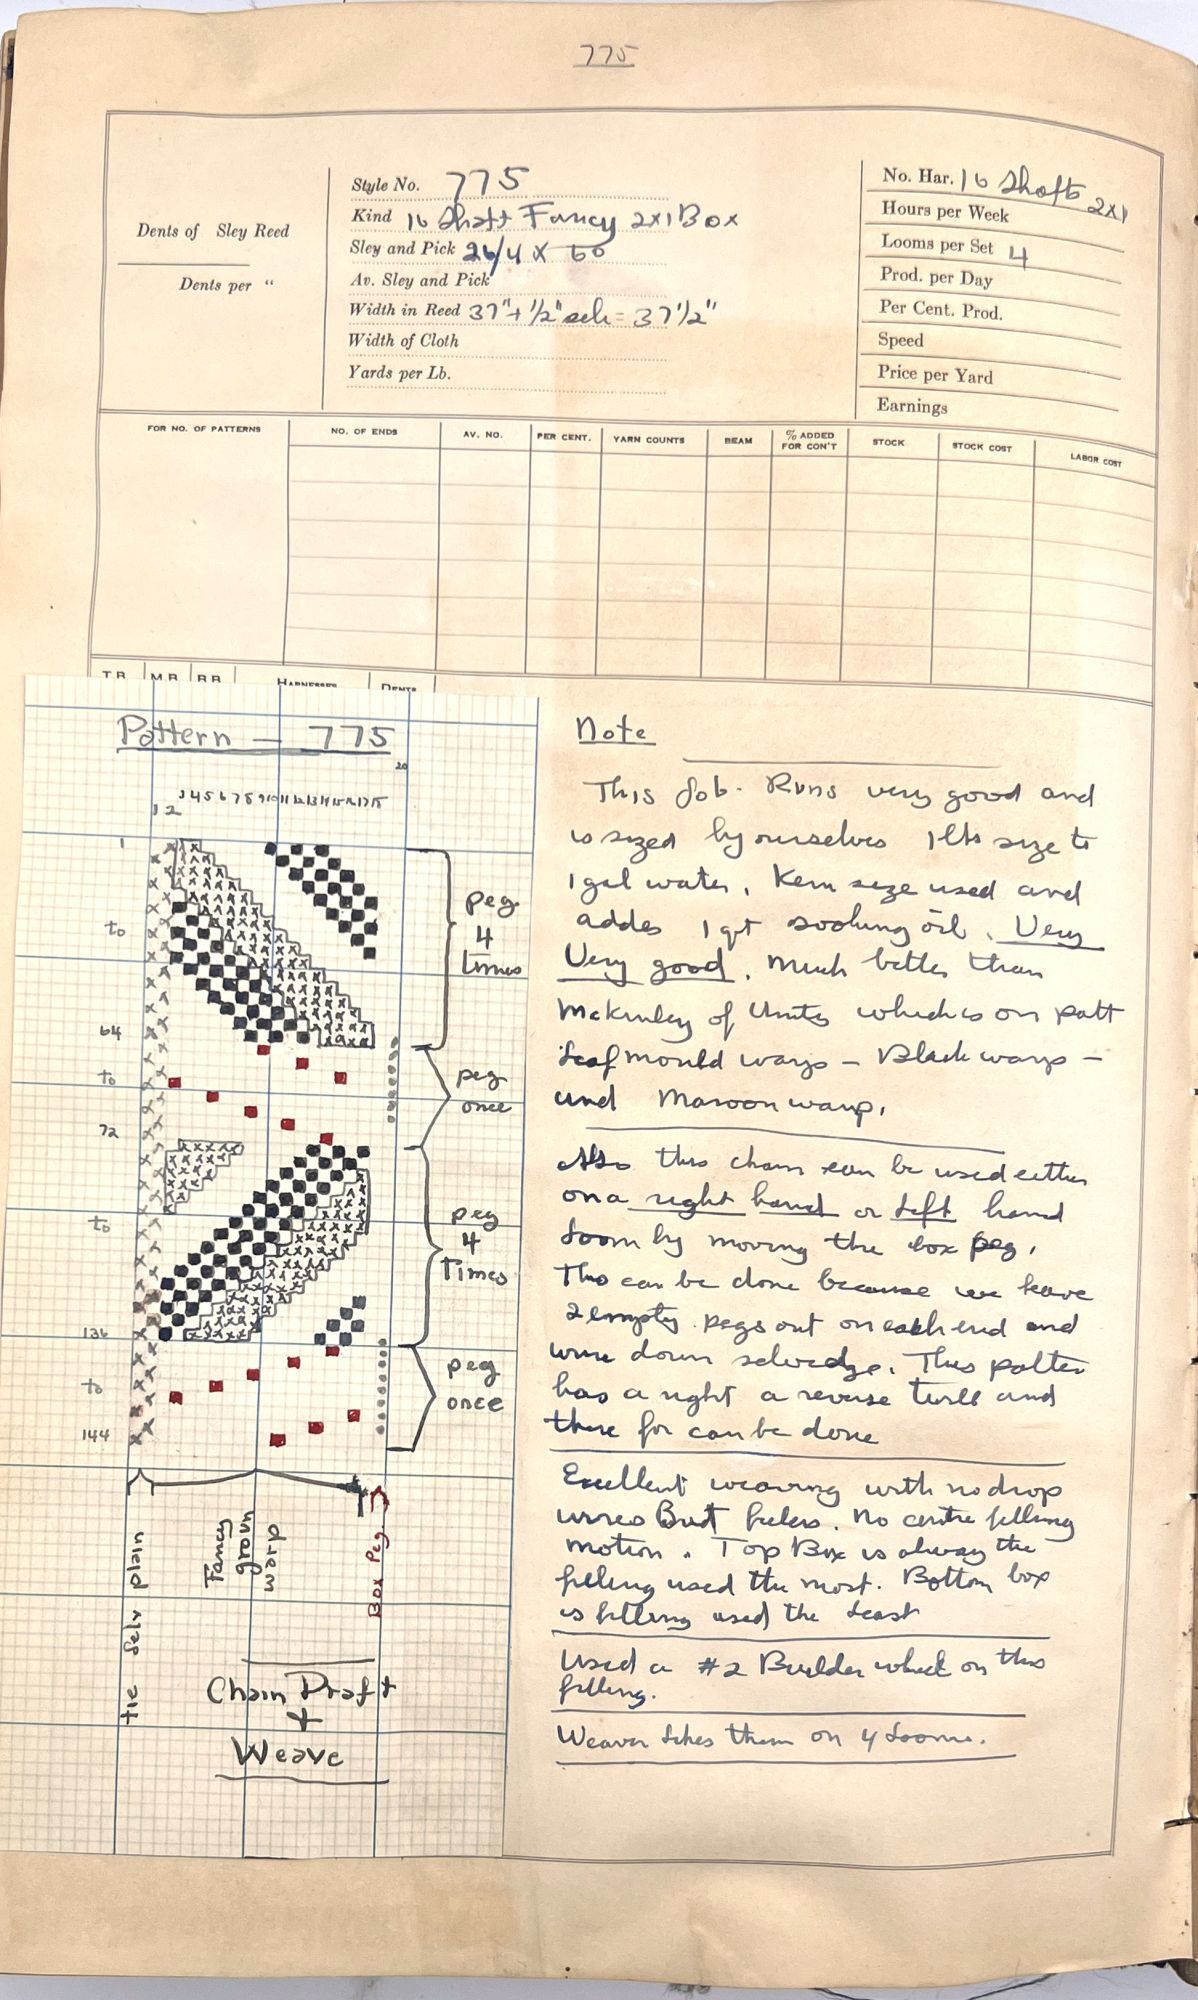 775
Style No. 775
Kind 16 Shaft Fancy 2x1 Box
Sley and Pick 26/4 x 50
Av. Sley and Pick
Width in Reed 37" + 1/2" selv = 37 1/2"
Width of Cloth
Yards per Lb.
Dents of Sley Reed
Dents per "
No. Har. 16 Shafts 2x1
Hours per Week
Looms per Set 4
Prod. per Day
Per Cent. Prod.
Speed
Price per Yard
Earnings
FOR NO. OF PATTERNS NO. OF ENDS AV. NO. PER CENT. YARN COUNTS BEAM % ADDED FOR CON'T STOCK STOCK COST LABOR COST
T.B. M.B. B.B. HARNESSES DENTS
Pattern — 775
20
1 2 3 4 5 6 7 8 9 10 11 12 13 14 15 16 17 18
1
to
64
to
72
to
136
to
144
peg
4
times
peg
once
peg
4
Times
peg
once
tie selv plain
Fancy
groun
warp
Box Peg
Chain Draft
+
Weave
Note
This Job. Runs very good and
is sized by ourselves 1 lbs size to
1 gal water. Kem size used and
addes 1 qt soaking oil. Very
Very good. Much better than
McKinley of Units which is on patt
Leaf mould warp – Black warp –
and Maroon warp.
Also this chain can be used either
on a right hand or Left hand
Loom by moving the box peg.
This can be done because we have
2 empty pegs out on each end and
wire down selvedge. This patter
has a right a reverse Twill and
there for can be done
Excellent weaving with no drop
wires But feelers. No centre filling
motion. Top Box is alway the
filling used the most. Bottom box
is filling used the Least
Used a #2 Builder wheel on this
filling.
Weaver likes them on 4 Looms.